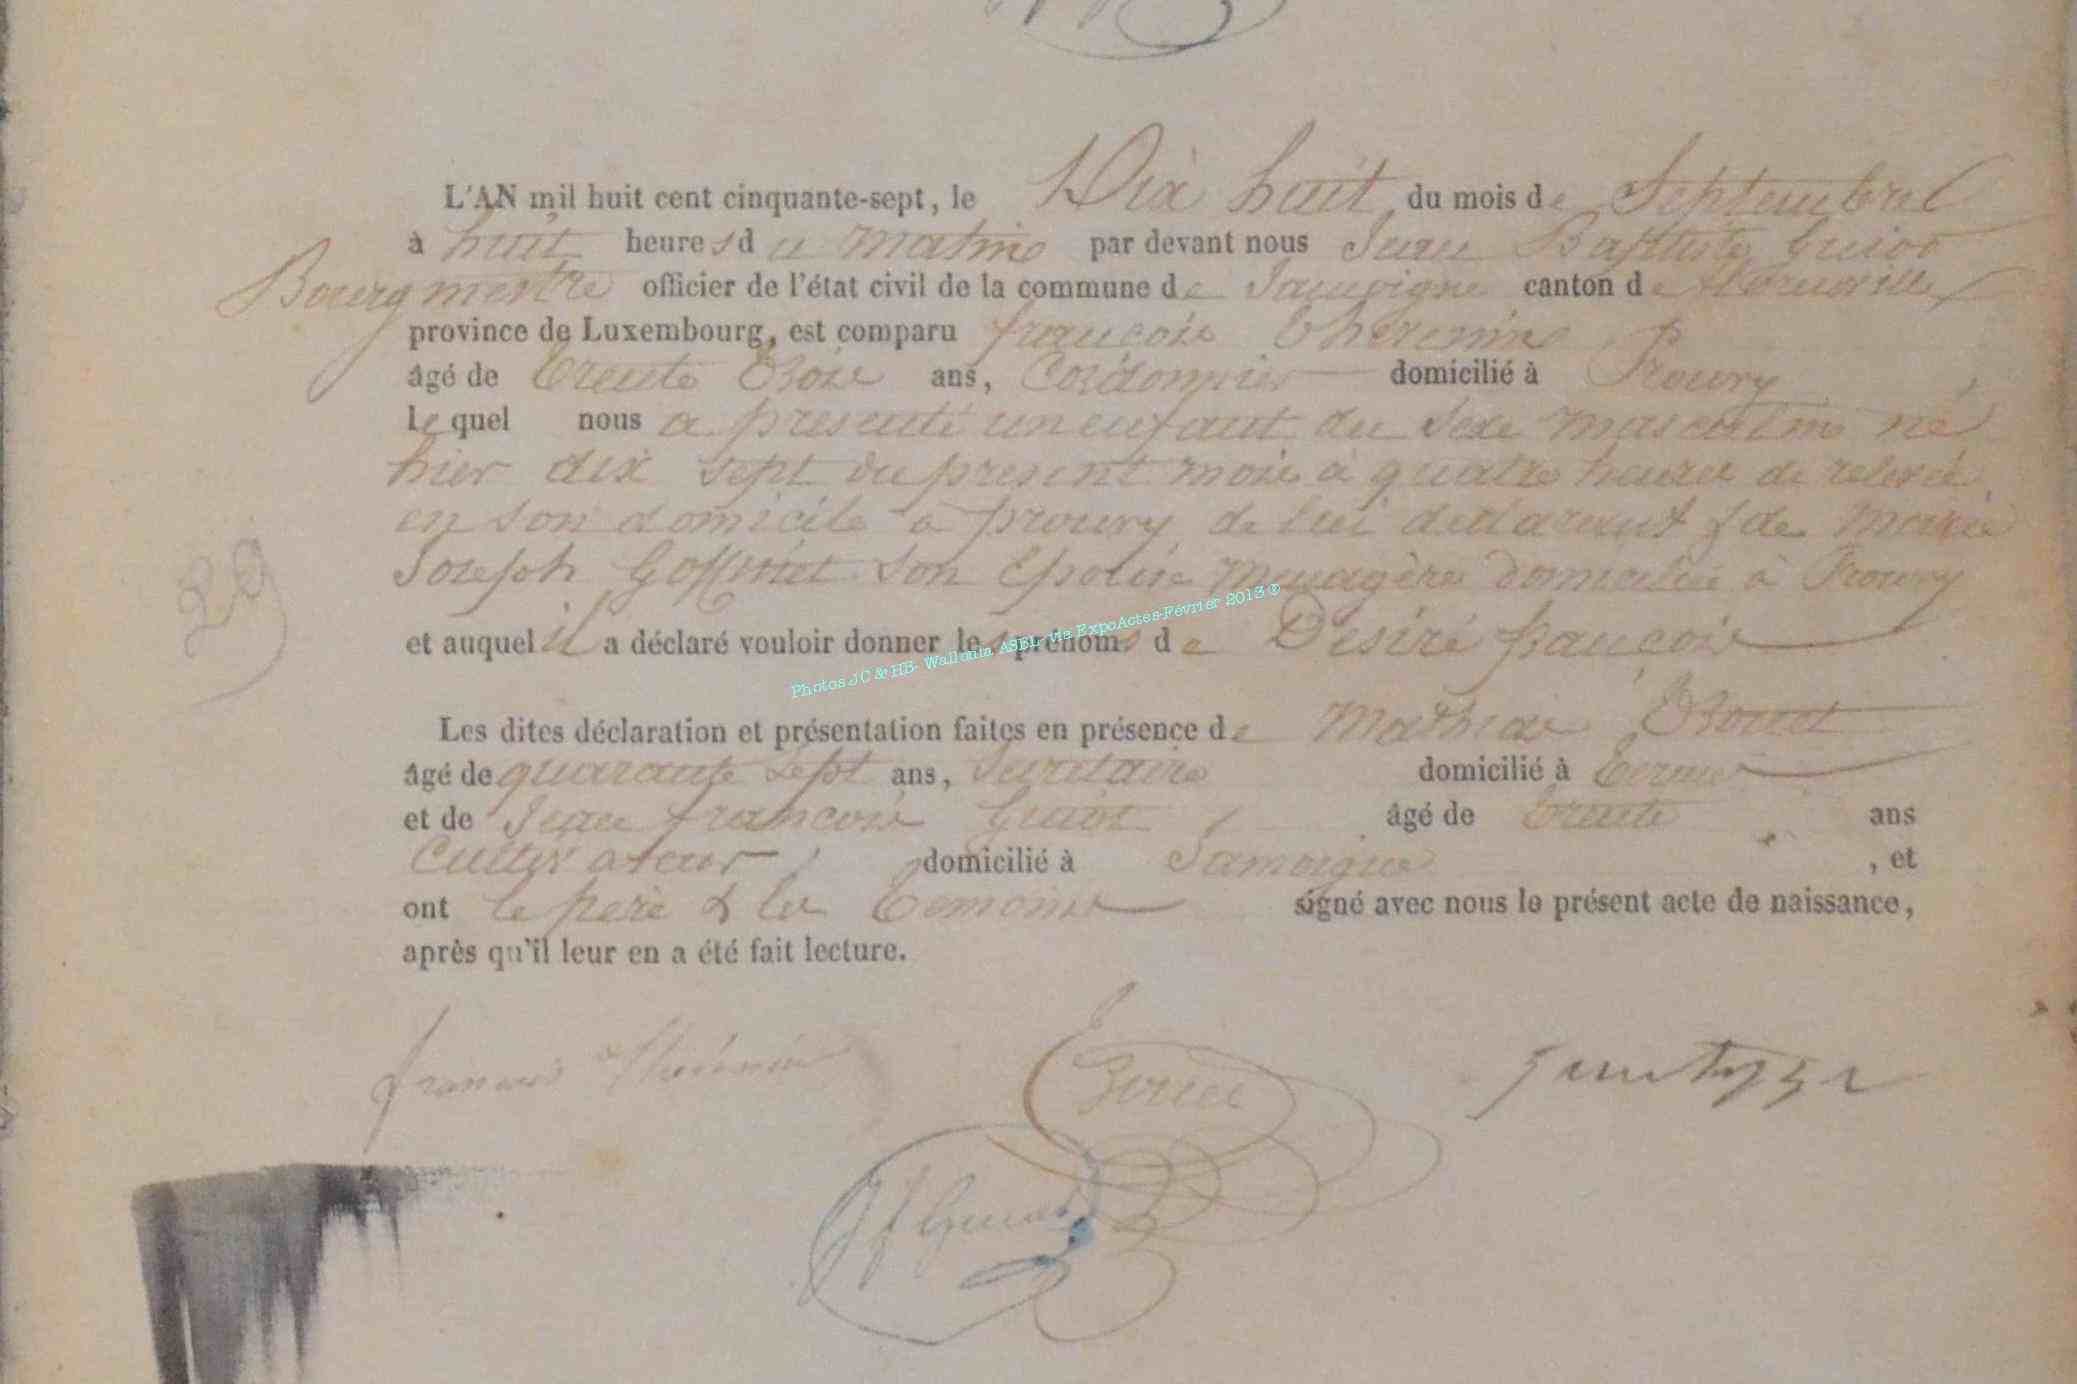 L'AN mil huit cent cinquante-sept, le Dix huit du mois de Septembre
à huit heures du matin par devant nous Jean Baptiste Guiot
Bourgmestre officier de l'état civil de la commune de Jamoigne canton de
province de Luxembourg, est comparu françois Theremin
âgé de Trente Trois ans, Cordonnier domicilié à Prouvy
le quel nous a presenté un enfant du sexe masculin né
hier dix sept du present mois à quatre heures de relevé
en son domicile a prouvy de lui declarant & de Marie
Joseph Goffinet son Epouse menagère domiciliée à Prouvy
29
et auquel il a déclaré vouloir donner les prénoms de Desiré françois
Photos JC & HB- Wallonia ASBL via ExpoActes-Février 2013 ©
Les dites déclaration et présentation faites en présence de Mathias
âgé de quarante sept ans, Secretaire domicilié à Termes
et de Jean françois Guiot âgé de Trente ans
Cultivateur, domicilié à Jamoigne, et
ont le père & les Temoins signé avec nous le présent acte de naissance,
après qu'il leur en a été fait lecture.
francois
J f Guiot